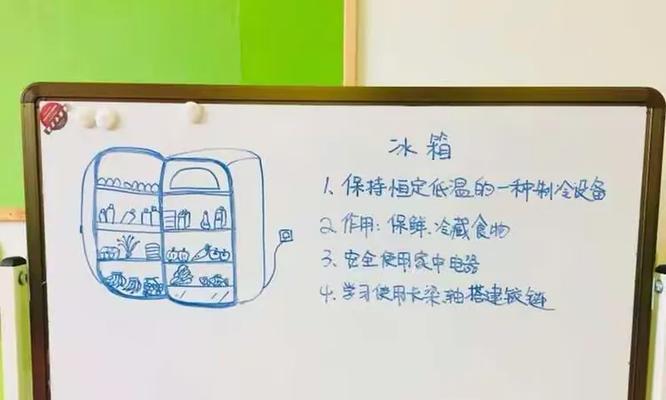 冰箱
1、保持恒定低温的一种制冷设备
2、作用：保鲜、冷藏食物
3、安全使用家中电器
4、学习使用卡梁、轴搭建铰链